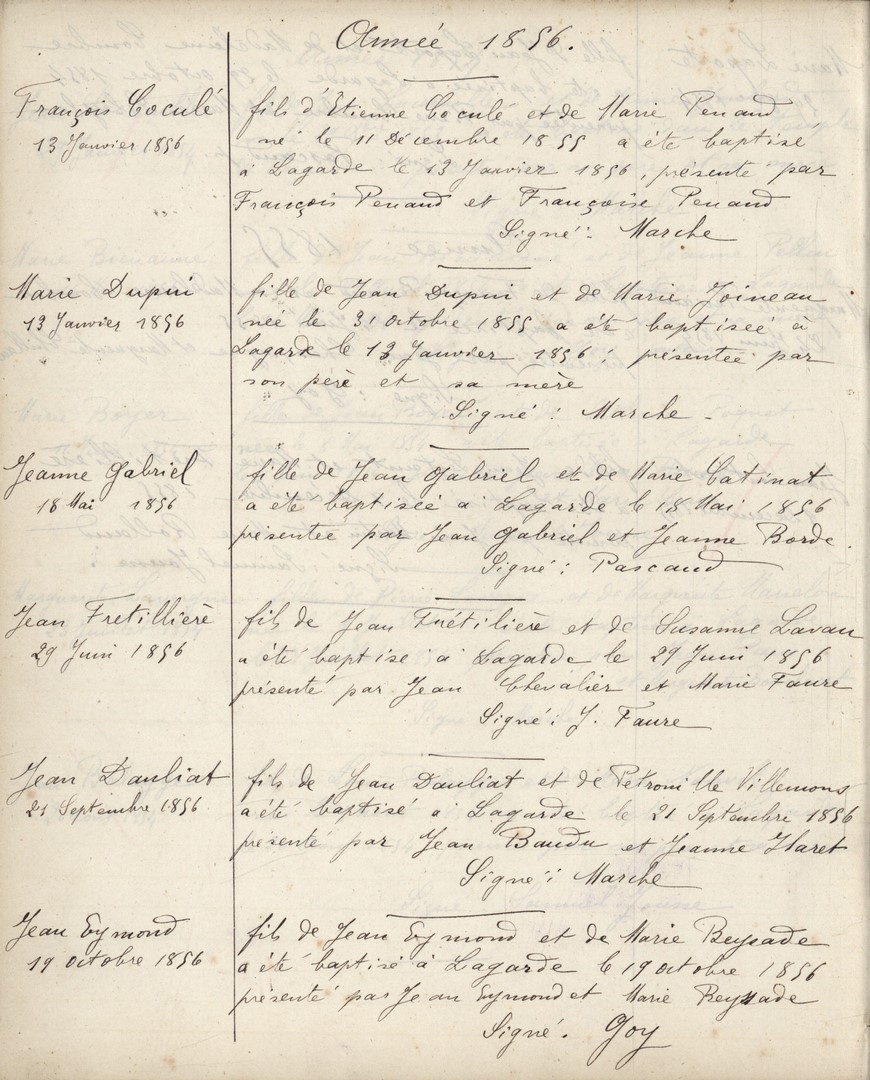 Année 1856.
François Coculé
13 Janvier 1856
fils d'Etienne Coculé et de Marie Penaud
né le 11 Décembre 1855 a été baptisé
à Lagarde le 13 Janvier 1856, présenté par
François Penaud et Françoise Penaud
Signé: Marche
Marie Dupui
13 Janvier 1856
fille de Jean Dupui et de Marie Joineau
née le 31 octobre 1855 a été baptiseé à
Lagarde le 13 Janvier 1856: présentée par
son péré et sa mére
Signé: Marche -
Jeanne Gabriel
18 Mai 1856
fille de Jean Gabriel et de Marie Catinat
a été baptiseé a Lagarde le 18 Mai 1856
présentee par Jean Gabriel et Jeanne Borde.
Signé: Pascaud
Jean Fretillierè
29 Juin 1856
fils de Jean Frétilière et de Susanne Lavau
a été baptise à Lagarde le 29 Juin 1856
présenté par Jean Chevalier et Marie Faure
Signé: J. Faure
Jean Dauliat
21 Septembre 1856
fils de Jean Dauliat et de Petronille Villemons
a été baptisé a Lagarde le 21 Septembre 1856
présenté par Jean Baudu et Jeanne
Signé: Marche
Jean Eymond
19 octobre 1856
fils de Jean Eymond et de Marie Beyssade
a été baptisé à Lagarde le 19 octobre 1856
présenté par Jean Eymond et Marie Beyssade
Signé. Goy